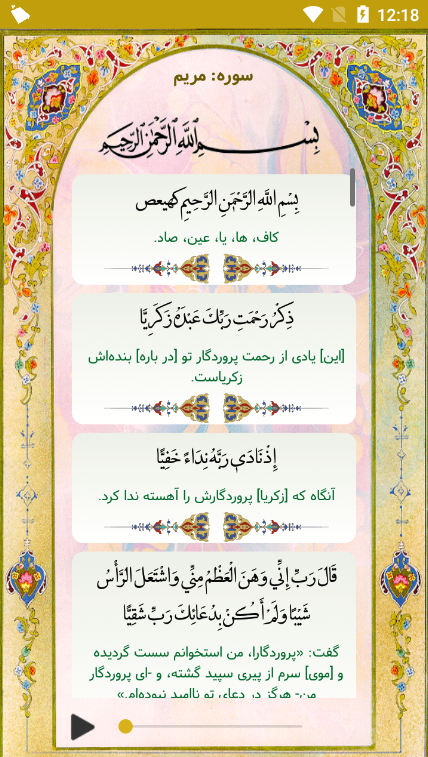 12:18
سوره: مریم
بِسْمِ اللَّهِ الرَّحْمَٰنِ الرَّحِيمِ
بِسْمِ اللَّهِ الرَّحْمَٰنِ الرَّحِيمِ كهيعص
کاف، ها، یا، عین، صاد.
ذِكْرُ رَحْمَتِ رَبِّكَ عَبْدَهُ زَكَرِيَّا
[این] یادی از رحمت پروردگار تو [در باره] بنده‌اش
زکریاست.
إِذْ نَادَىٰ رَبَّهُ نِدَاءً خَفِيًّا
آنگاه که [زکریا] پروردگارش را آهسته ندا کرد.
قَالَ رَبِّ إِنِّي وَهَنَ الْعَظْمُ مِنِّي وَاشْتَعَلَ الرَّأْسُ
شَيْبًا وَلَمْ أَكُنْ بِدُعَائِكَ رَبِّ شَقِيًّا
گفت: «پروردگارا، من استخوانم سست گردیده
و [موی] سرم از پیری سپید گشته، و -ای پروردگار
من- هرگز در دعای تو ناامید نبوده‌ام.»